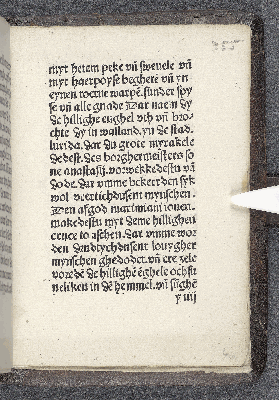 myt hetem peke vn̄ swevele vn̄
myt haerpoyse beghere vn̄ yn
eynen toerne warpē. sunder spy
se vn̄ alle gnade Dar naem dy
de hillighe enghel vth vn̄ bro-
chte dy in walland. yn de stad
lurida. dar du grote myrakele
dedest. des borghermeisters so
ne anastasij. vorwekkedestu vā
dode. dar vmme bekerden syk
wol veertichdusent mynschen.
Den afgod martimiani iouem.
makedestu myt deme hillighen
cruce to aschen. dar vmme wor
den drndtychdusent louygher
mynschen ghedodet. vn̄ ere zele
vorede de hillighe ēghele ochstu
neliken in dē hemmel. vn̄ sūghē
y iiij